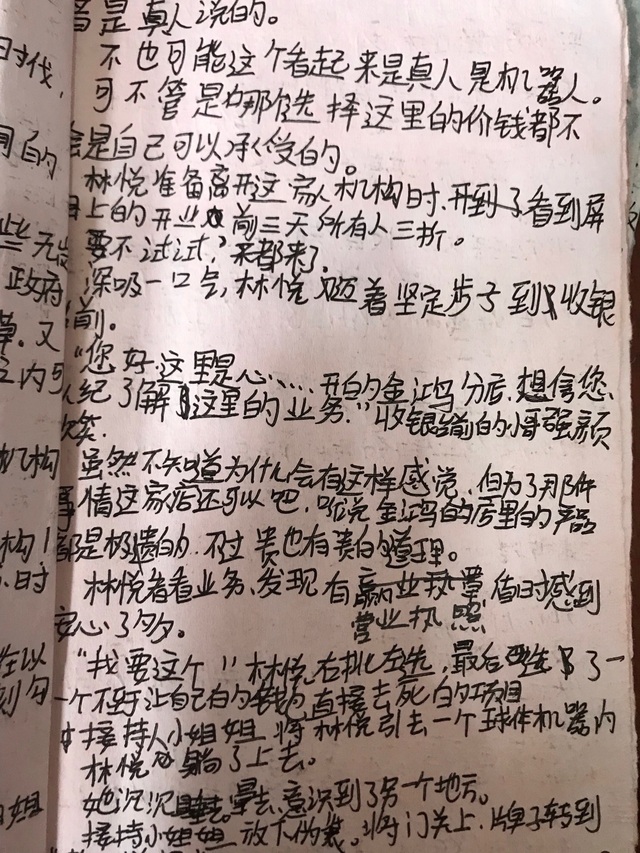 音是真人说的。
不也可能这个看起来是真人是机器人。
可不管是哪个选择这里的价钱都不
会是自己可以承受的。
林悦准备离开这家机构时,看到屏
上的开业前三天所有人三折。
要不试试?来都来了。
深吸一口气,林悦迈着坚定步子到收银
前。
"您好这里是心……开的金鸿鸟分店.想信您
已经了解了这里的业务."收银台前的小哥强颜
欢笑.
虽然不知道为什么会有这样感觉,但为了那件
事情这家店还可以吧,听说金鸿鸟的店里的产品
都是极贵的.不过贵也有贵的道理。
林悦看看业务、发现有营业执照顿时感到
安心了多。
"我要这个"林悦右挑左选,最后选了一
一个不至于让自己白勺钱白直接去死的项目
接持人小姐姐将林悦引去一个球体机器内
林悦躺了上去。
她沉沉睡去.意识到了另一个地方。
接持小姐姐放下伪装。将门关上.牌子转到
时代,
目的
些无
政府
草.又
之内可
机构
构
时
在以
刻勺
姐